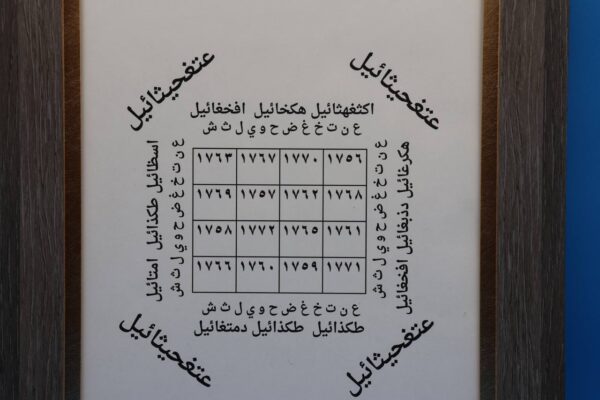 عتغحيثائيل
عتغحيثائيل
اكثغهثائيل هكخائيل افخغائيل
ع ن ت خ غ ض ح و ي ل ث ش
١٧٦٣ ١٧٦٧ ١٧٧٠ ١٧٥٦
١٧٦٩ ١٧٥٧ ١٧٦٢ ١٧٦٨
١٧٥٨ ١٧٧٢ ١٧٦٥ ١٧٦١
١٧٦٦ ١٧٦٠ ١٧٥٩ ١٧٧١
هكرغائيل دذبغائيل افخغائيل
ع ن ت خ غ ض ح و ي ل ث ش
اسظائيل طكذائيل امتائيل
ع ن ت خ غ ض ح و ي ل ث ش
ع ن ت خ غ ض ح و ي ل ث ش
طكذائيل طكذائيل دمتغائيل
عتغحيثائيل
عتغحيثائيل